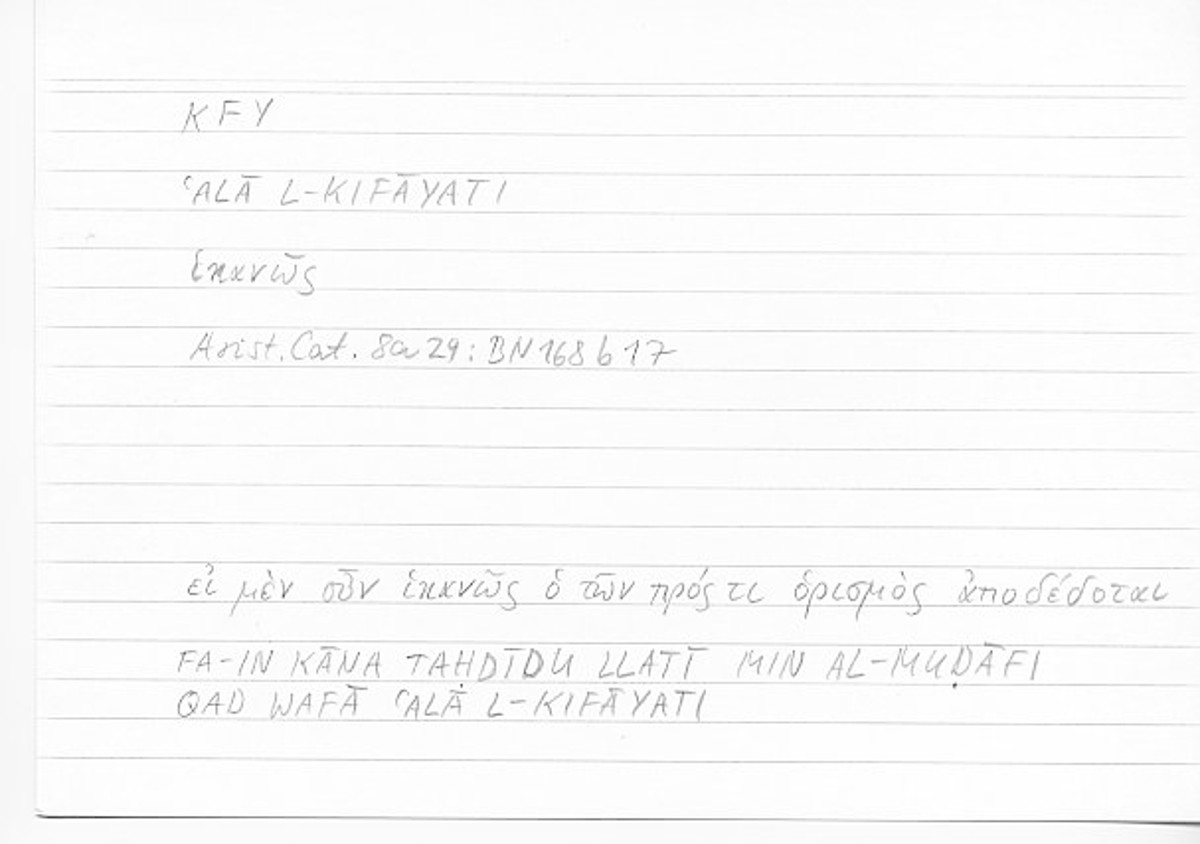 KFY
ʿALĀ L-KIFĀYATI
ἱκανῶς
Arist. Cat. 8a29: BN 168b17
εἰ μὲν οὖν ἱκανῶς ὁ τῶν πρός τι ὁρισμὸς ἀποδέδοται
FA-IN KĀNA TAḤDĪDU LLATĪ MIN AL-MUḌĀFI
QAD WAFĀ ʿALĀ L-KIFĀYATI